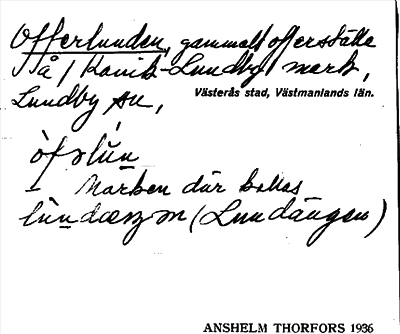 Offerlunden, gammalt offerställe
på / Kavik-Lundby mark,
Lundby sn,
Västerås stad, Västmanlands län.
Marken där kallas
(Lundängen)
ANSHELM THORFORS 1936